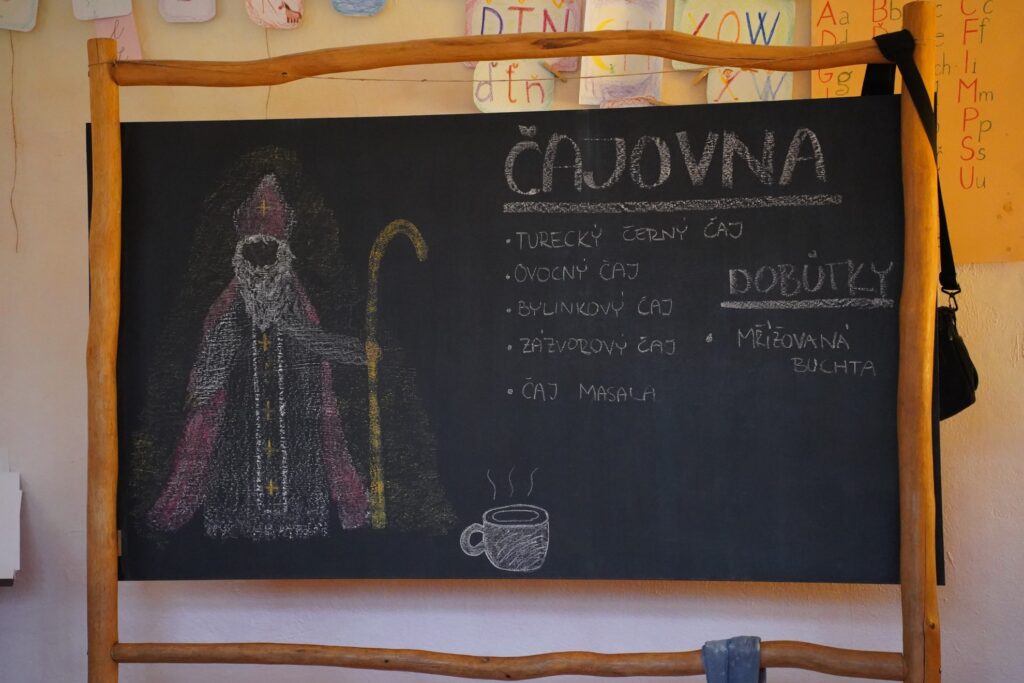 ĎŤŇ
ďťň
Aa B Cc
Ff
g ch I
Mm
Pp
Ss
Uu
ČAJOVNA
• TURECKÝ ČERNÝ ČAJ
• OVOCNÝ ČAJ
• BYLINKOVÝ ČAJ
• ZÁZVOROVÝ ČAJ
• ČAJ MASALA
DOBŮTKY
• MŘÍŽOVANÁ
BUCHTA